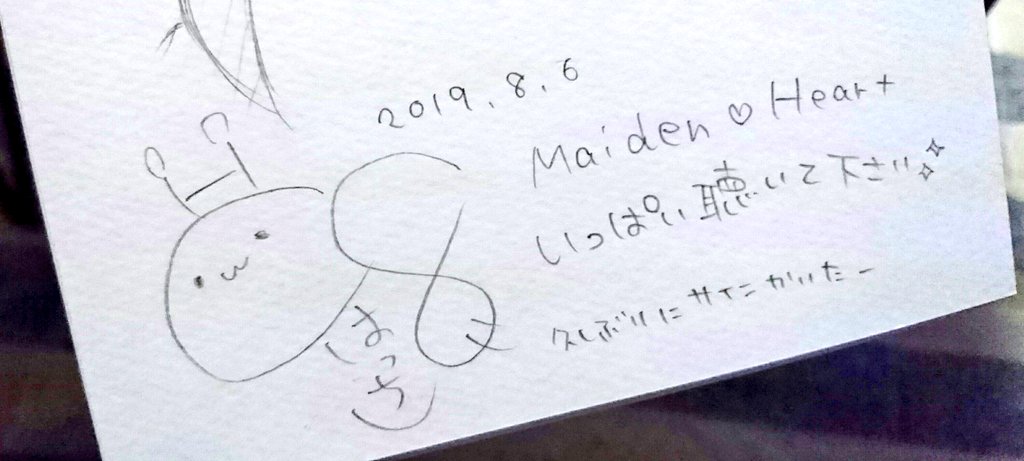 2019.8.6
Maiden ♡ Heart
いっぱい聴いて下さい
久しぶりにサインかいたー
はっち